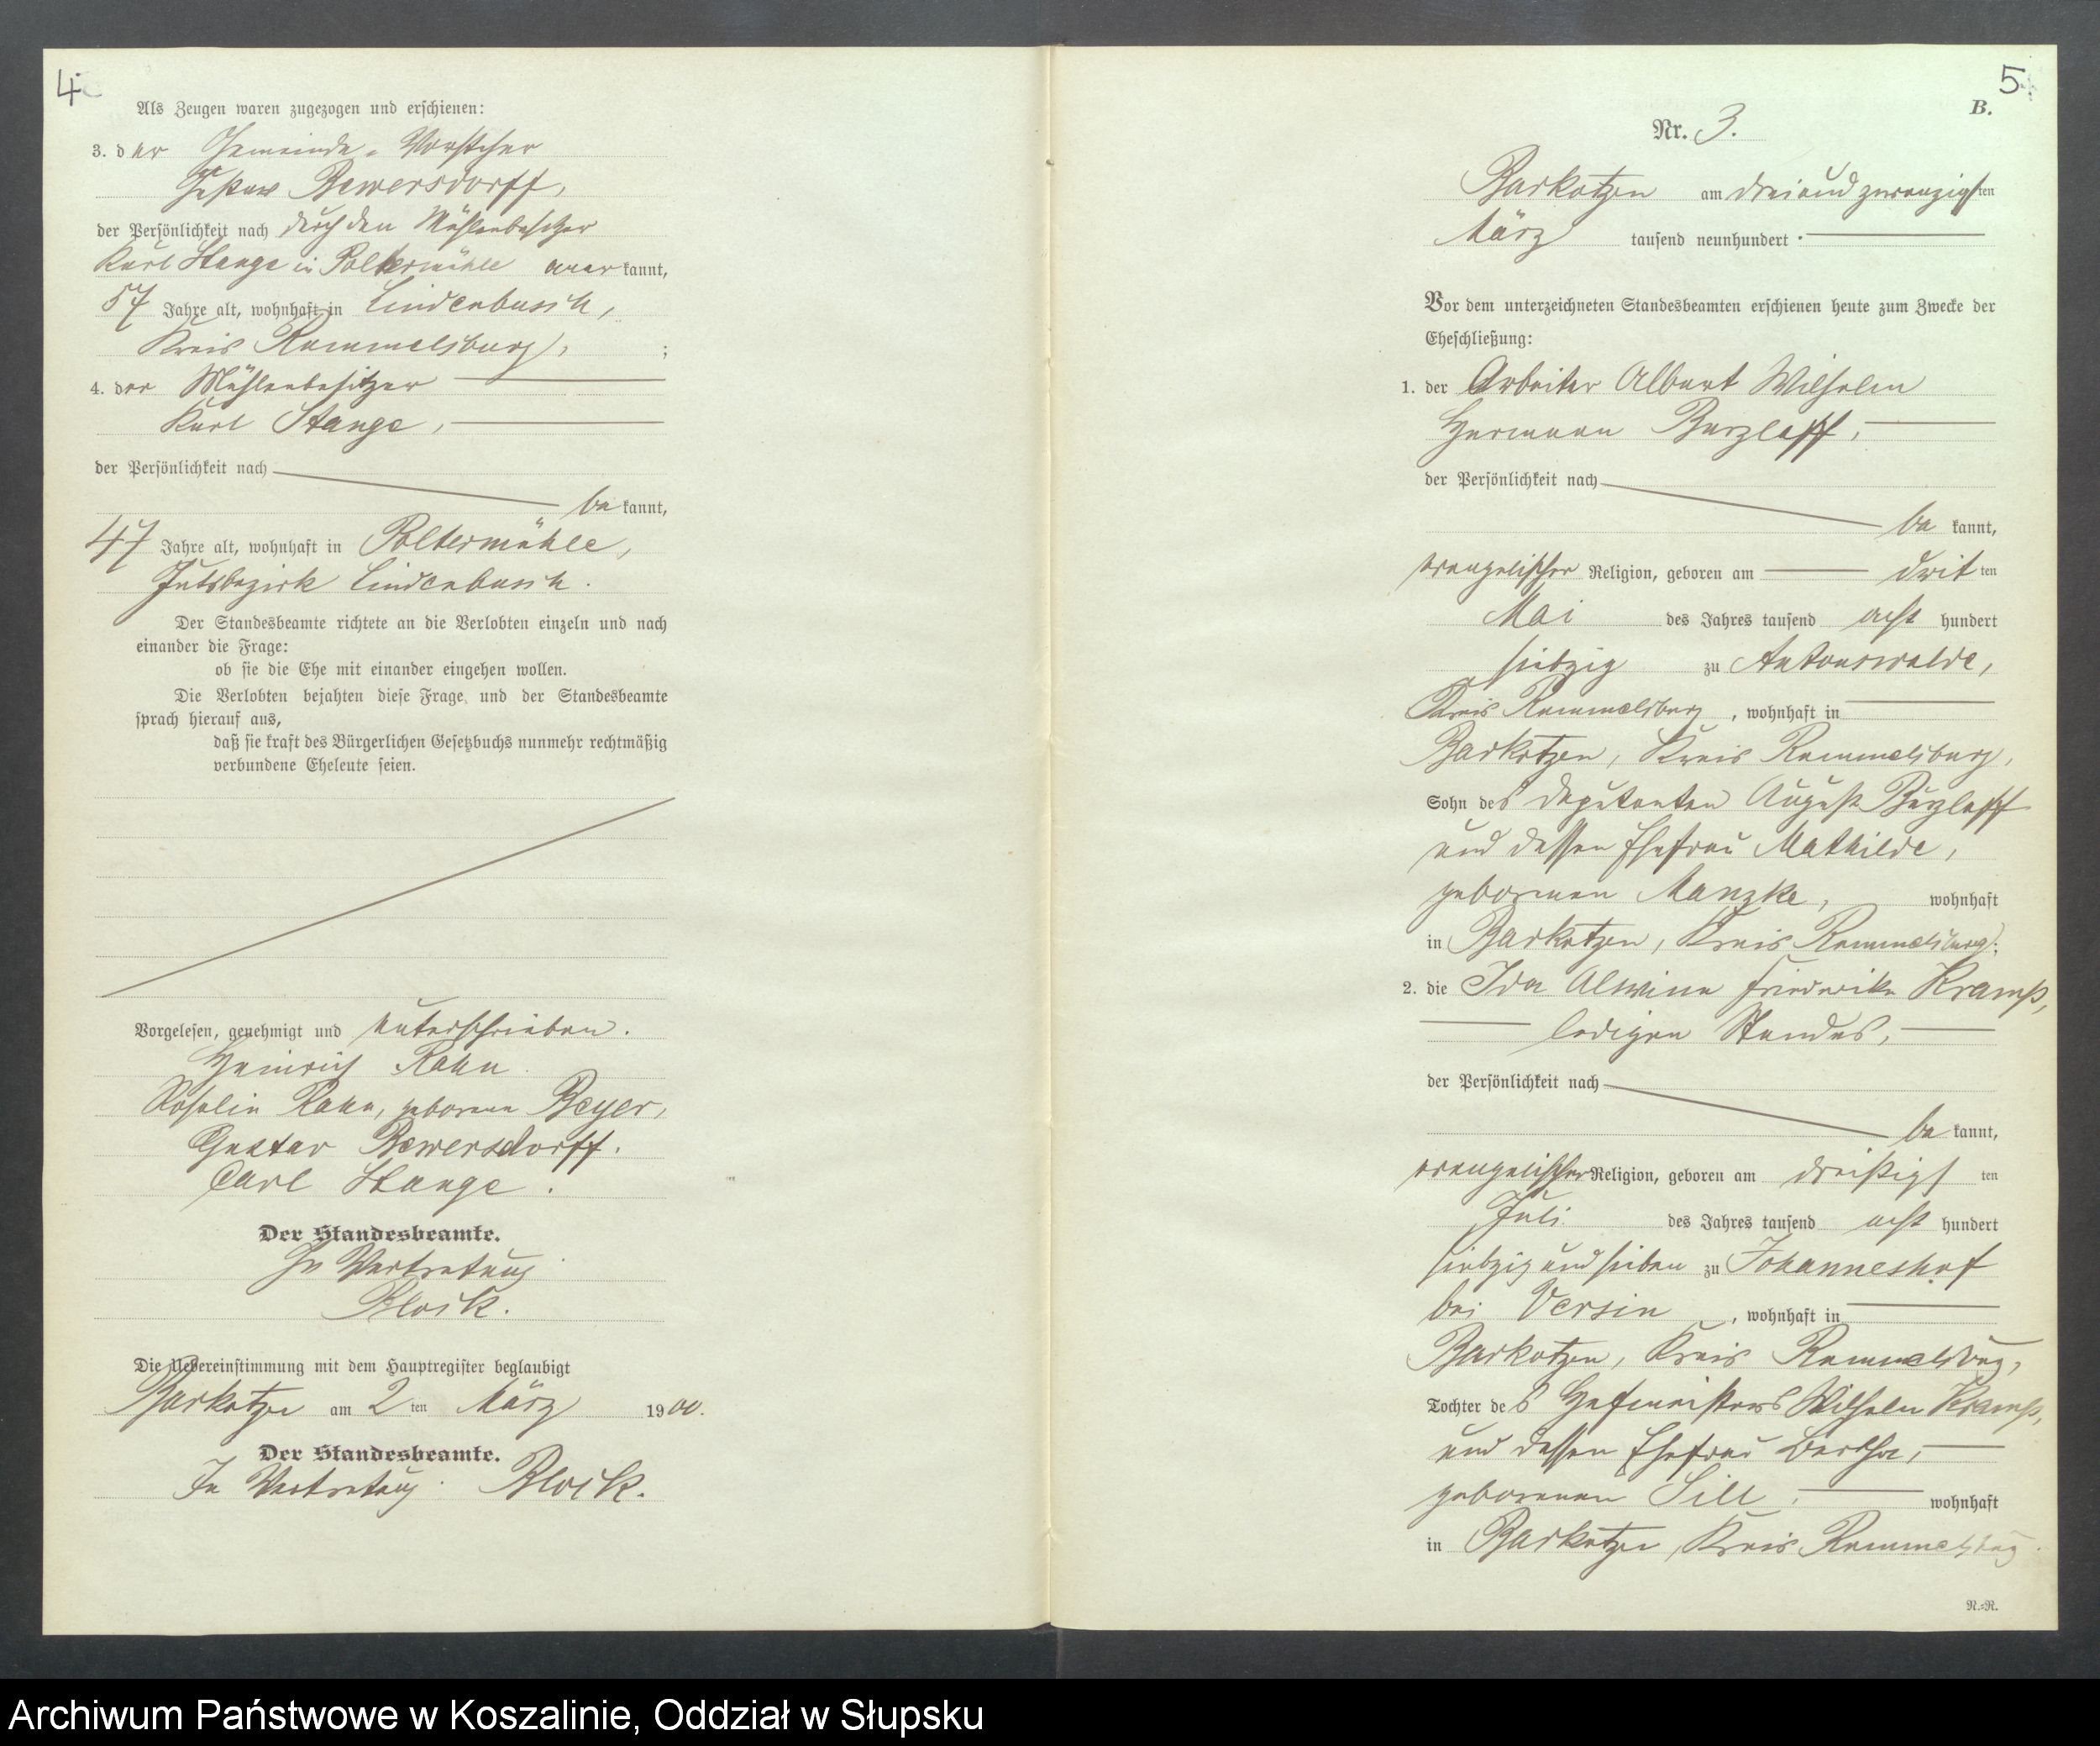 4
Als Zeugen waren zugezogen und erschienen:
3. der Gemeinde-Vorsteher
Gustav Bewersdorff,
der Persönlichkeit nach durch den Mühlenbesitzer
Karl Stange in Poltermühle anerkannt,
57 Jahre alt, wohnhaft in Lindenbusch,
Kreis Rummelsburg, ;
4. der Mühlenbesitzer
Karl Stange,
der Persönlichkeit nach
bekannt,
47 Jahre alt, wohnhaft in Poltermühle,
Gutsbezirk Lindenbusch.
Der Standesbeamte richtete an die Verlobten einzeln und nach
einander die Frage:
ob sie die Ehe mit einander eingehen wollen.
Die Verlobten bejahten diese Frage, und der Standesbeamte
sprach hierauf aus,
daß sie kraft des Bürgerlichen Gesetzbuchs nunmehr rechtmäßig
verbundene Eheleute seien.
Vorgelesen, genehmigt und unterschrieben.
Heinrich Rahn.
Rosalie Rahn, geborene Beyer,
Gustav Bewersdorff.
Carl Stange.
Der Standesbeamte.
In Vertretung
Block.
Die Uebereinstimmung mit dem Hauptregister beglaubigt
Barkotzen am 2 ten März 1900.
Der Standesbeamte.
In Vertretung. Block.
5
B.
Nr. 3.
Barkotzen am dreiundzwanzigsten
März tausend neunhundert
Vor dem unterzeichneten Standesbeamten erschienen heute zum Zwecke der
Eheschließung:
1. der Arbeiter Albert Wilhelm
Hermann Burzlaff,
der Persönlichkeit nach
bekannt,
evangelischer Religion, geboren am dritten
Mai des Jahres tausend acht hundert
siebzig zu Antonswalde,
Kreis Rummelsburg, wohnhaft in
Barkotzen, Kreis Rummelsburg,
Sohn des Deputanten August Burzlaff
und dessen Ehefrau Mathilde,
geborenen Manzke, wohnhaft
in Barkotzen, Kreis Rummelsburg;
2. die Ida Alwine Friederike Kramp,
ledigen Standes,
der Persönlichkeit nach
bekannt,
evangelischer Religion, geboren am dreißigsten
Juli des Jahres tausend acht hundert
siebzig und sieben zu Johanneshof
bei Versin, wohnhaft in
Barkotzen, Kreis Rummelsburg,
Tochter des Hofmeisters Wilhelm Kramp,
und dessen Ehefrau Bertha,
geborenen Sill, wohnhaft
in Barkotzen, Kreis Rummelsburg.
N.=R.
Archiwum Państwowe w Koszalinie, Oddział w Słupsku